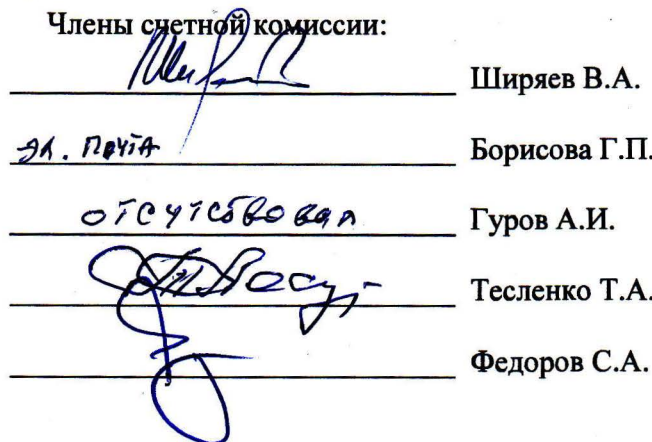 Члены счетной комиссии:
Ширяев В.А.
эл. почта Борисова Г.П.
отсутствовал Гуров А.И.
Тесленко Т.А.
Федоров С.А.